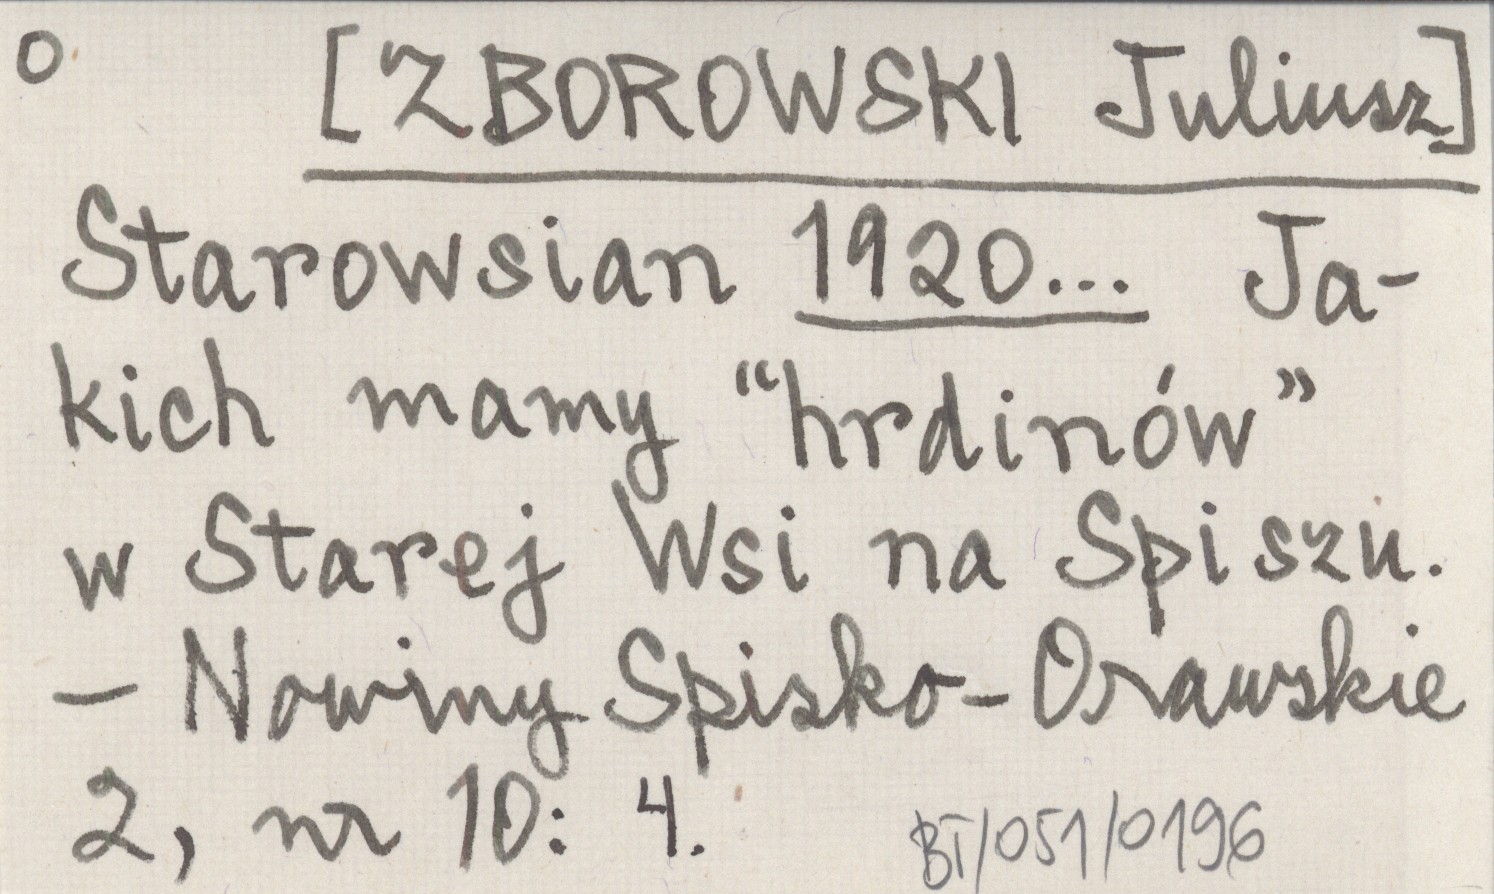 O [ZBOROWSKI Juliusz]
Starowsian 1920... Ja-
kich mamy “hrdinów”
w Starej Wsi na Spiszu.
— Nowiny Spisko-Orawskie
2, nr 10: 4.
BT/051/0196